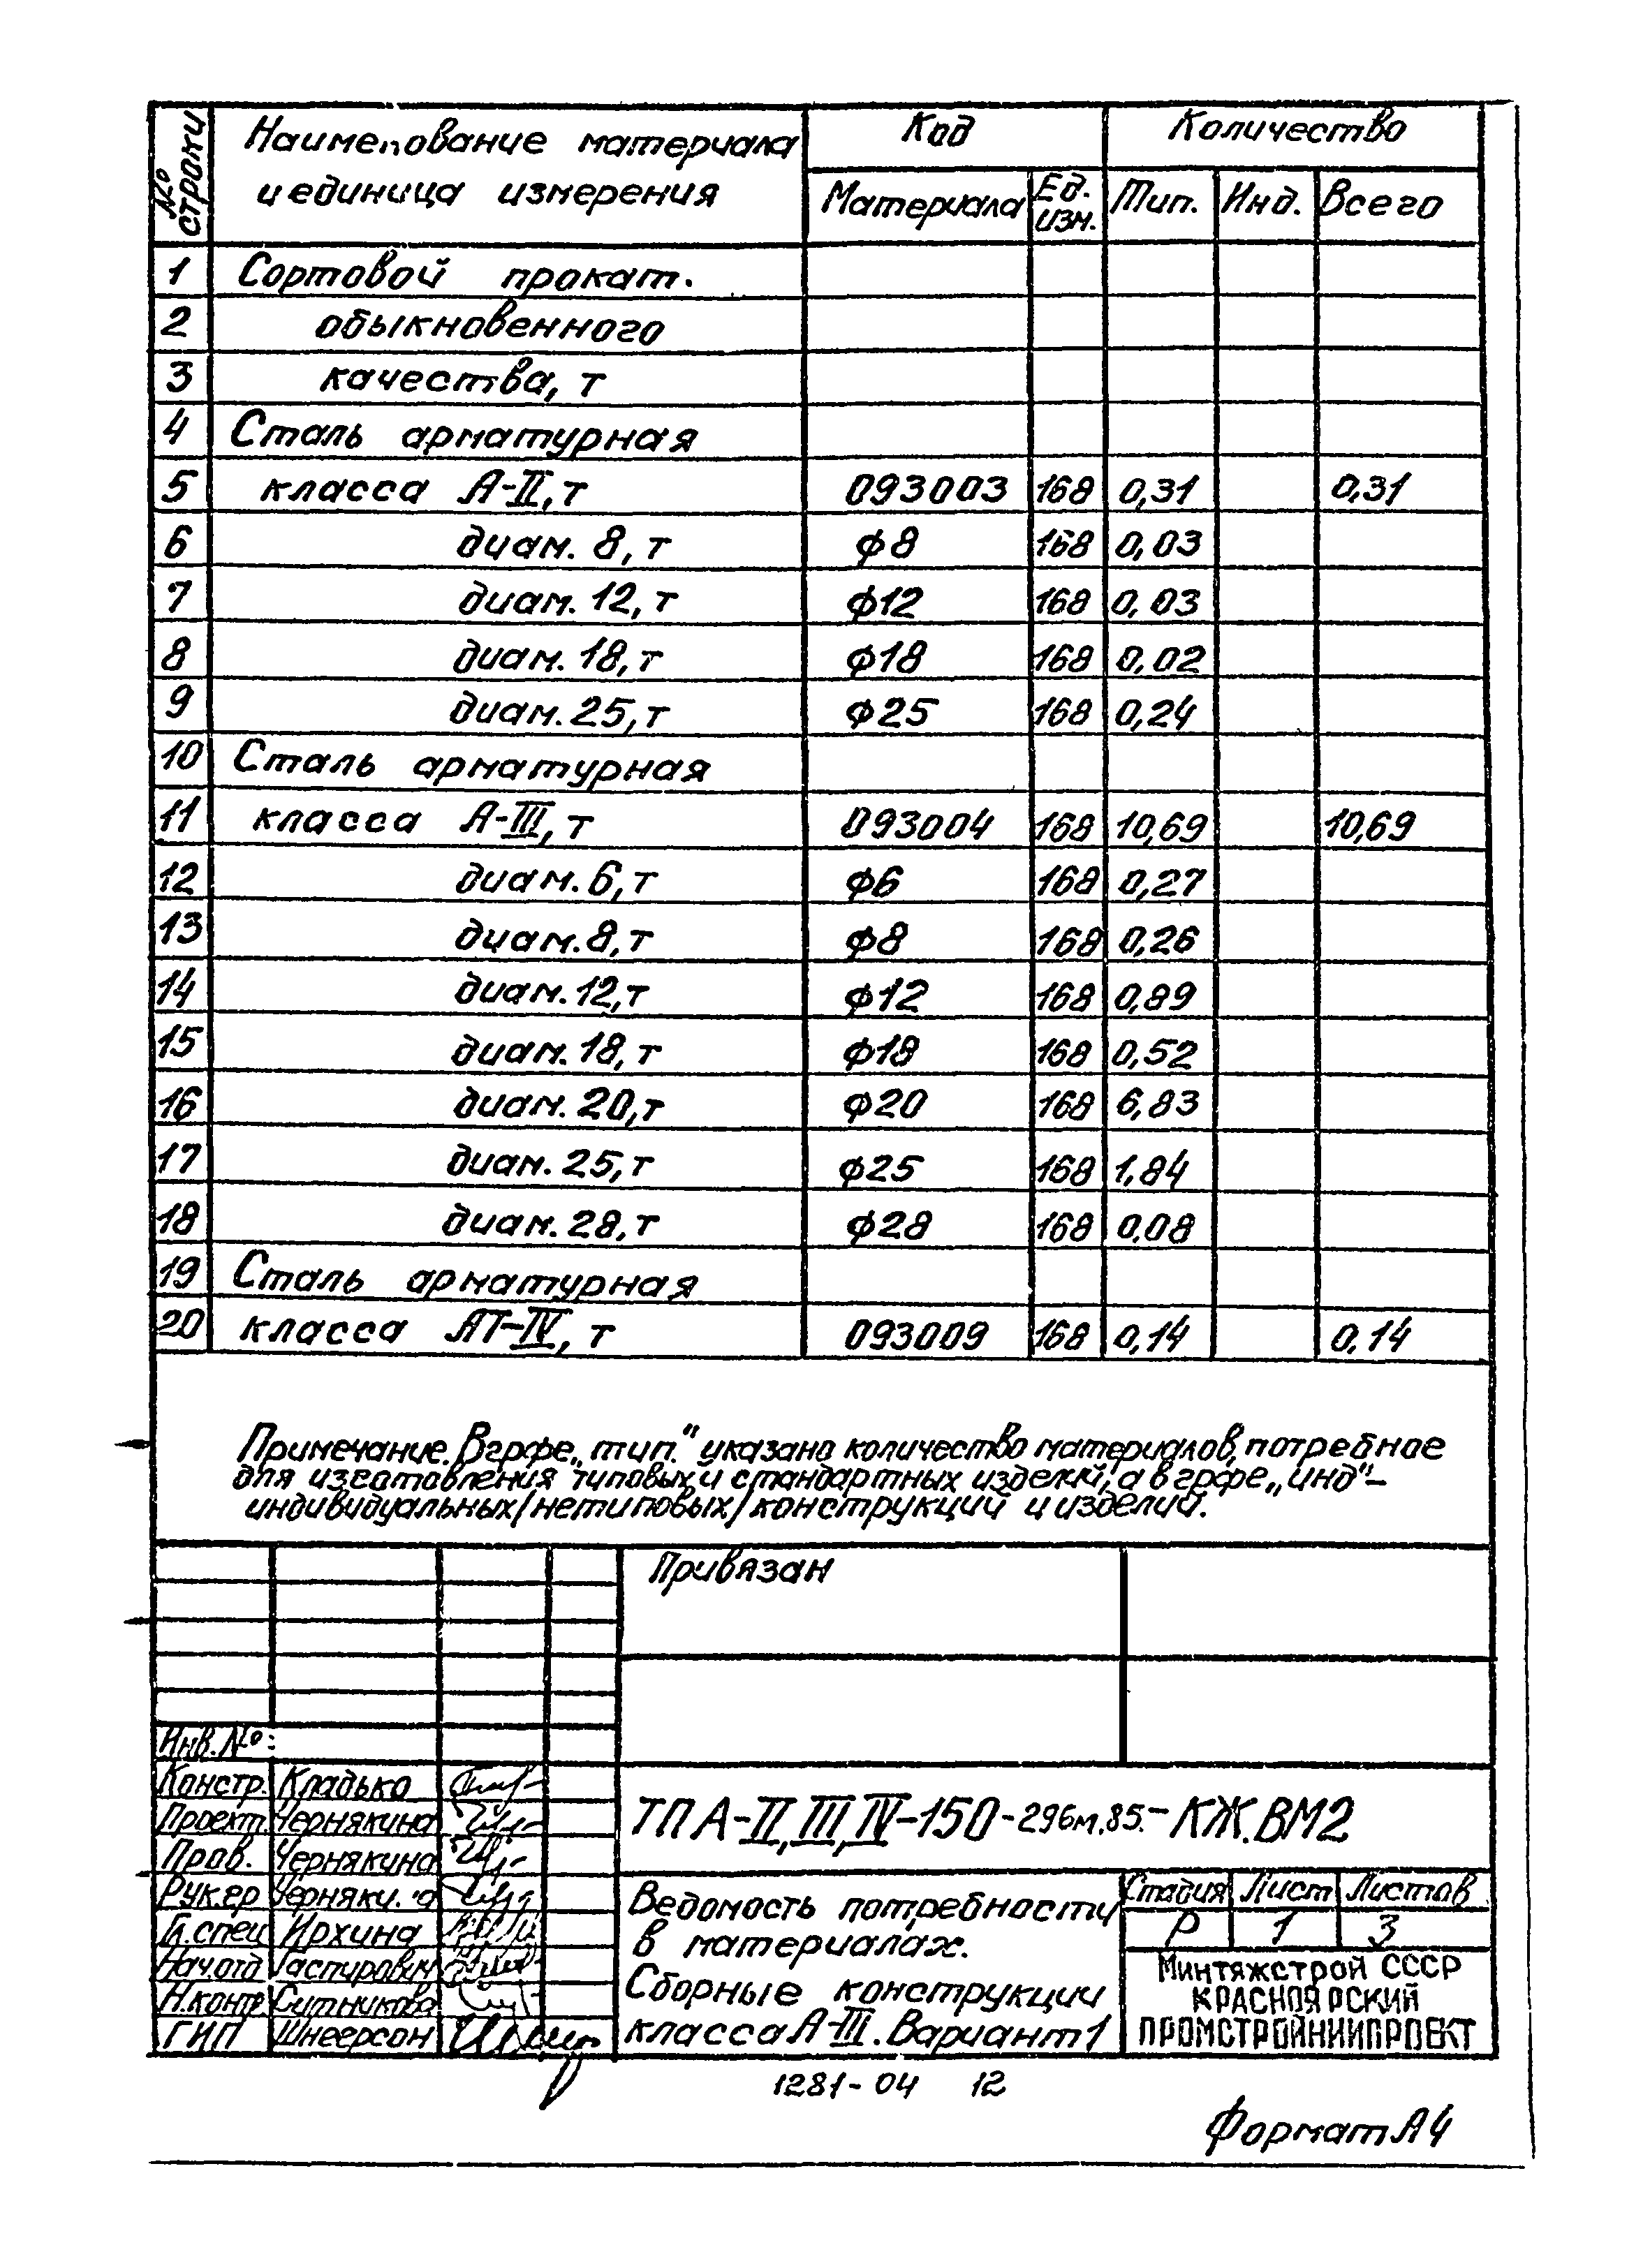 № строки Наименование материала и единица измерения Код Количество
Материала Ед. изм. Тип. Инд. Всего
1 Сортовой прокат.
2 обыкновенного
3 качества, т
4 Сталь арматурная
5 класса А-II, т 093003 168 0,31 0,31
6 диам. 8, т ф8 168 0,03
7 диам. 12, т ф12 168 0,03
8 диам. 18, т ф18 168 0,02
9 диам. 25, т ф25 168 0,24
10 Сталь арматурная
11 класса А-III, т 093004 168 10,69 10,69
12 диам. 6, т ф6 168 0,27
13 диам. 8, т ф8 168 0,26
14 диам. 12, т ф12 168 0,89
15 диам. 18, т ф18 168 0,52
16 диам. 20, т ф20 168 6,83
17 диам. 25, т ф25 168 1,84
18 диам. 28, т ф28 168 0,08
19 Сталь арматурная
20 класса АТ-IV, т 093009 168 0,14 0,14
Примечание. В грфе „тип." указано количество материалов, потребное
для изготовления типовых и стандартных изделий, а в грфе „инд"-
индивидуальных/нетиповых/конструкций и изделий.
Привязан
Инв. №:
Констр. Кладько
Проект. Чернякина
Пров. Чернякина
Рук.гр Черняки.а
Гл.спец Ирхина
Нач.отд Гаспирович
Н.контр Ситникова
ГИП Шнеерсон
ТП А-II,III,IV-150-296м.85.-КЖ.ВМ2
Ведомость потребности
в материалах.
Сборные конструкции
класса А-III. Вариант 1
Стадия Лист Листов
Р 1 3
Минтяжстрой СССР
КРАСНОЯРСКИЙ
ПРОМСТРОЙНИИПРОЕКТ
1281-04 12
Формат А4